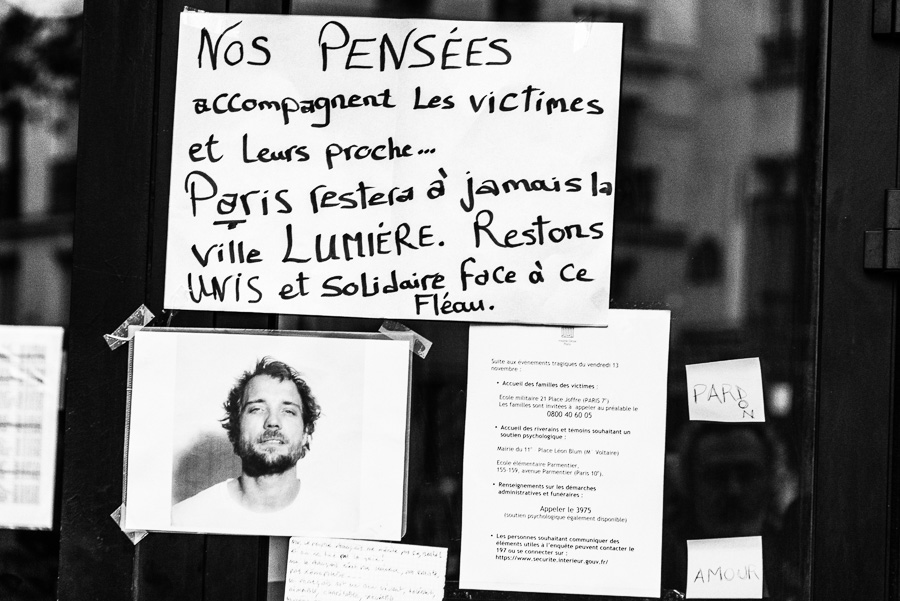 NOS PENSÉES
accompagnent Les victimes
et Leurs proche...
Paris restera à jamais la
ville LUMIÈRE. Restons
UNIS et Solidaire face à ce
Fléau.
Suite aux événements tragiques du vendredi 13
novembre :
• Accueil des familles des victimes :
Ecole militaire 21 Place Joffre (PARIS 7°)
Les familles sont invitées à appeler au préalable le
0800 40 60 05
• Accueil des riverains et témoins souhaitant un
soutien psychologique :
Mairie du 11° Place Léon Blum (M Voltaire)
Ecole élémentaire Parmentier,
155-159, avenue Parmentier (Paris 10°).
• Renseignements sur les démarches
administratives et funéraires :
Appeler le 3975
(soutien psychologique également disponible)
• Les personnes souhaitant communiquer des
éléments utiles à l'enquête peuvent contacter le
197 ou se connecter sur :
https://www.securite.interieur.gouv.fr/
PARD
ON
AMOUR